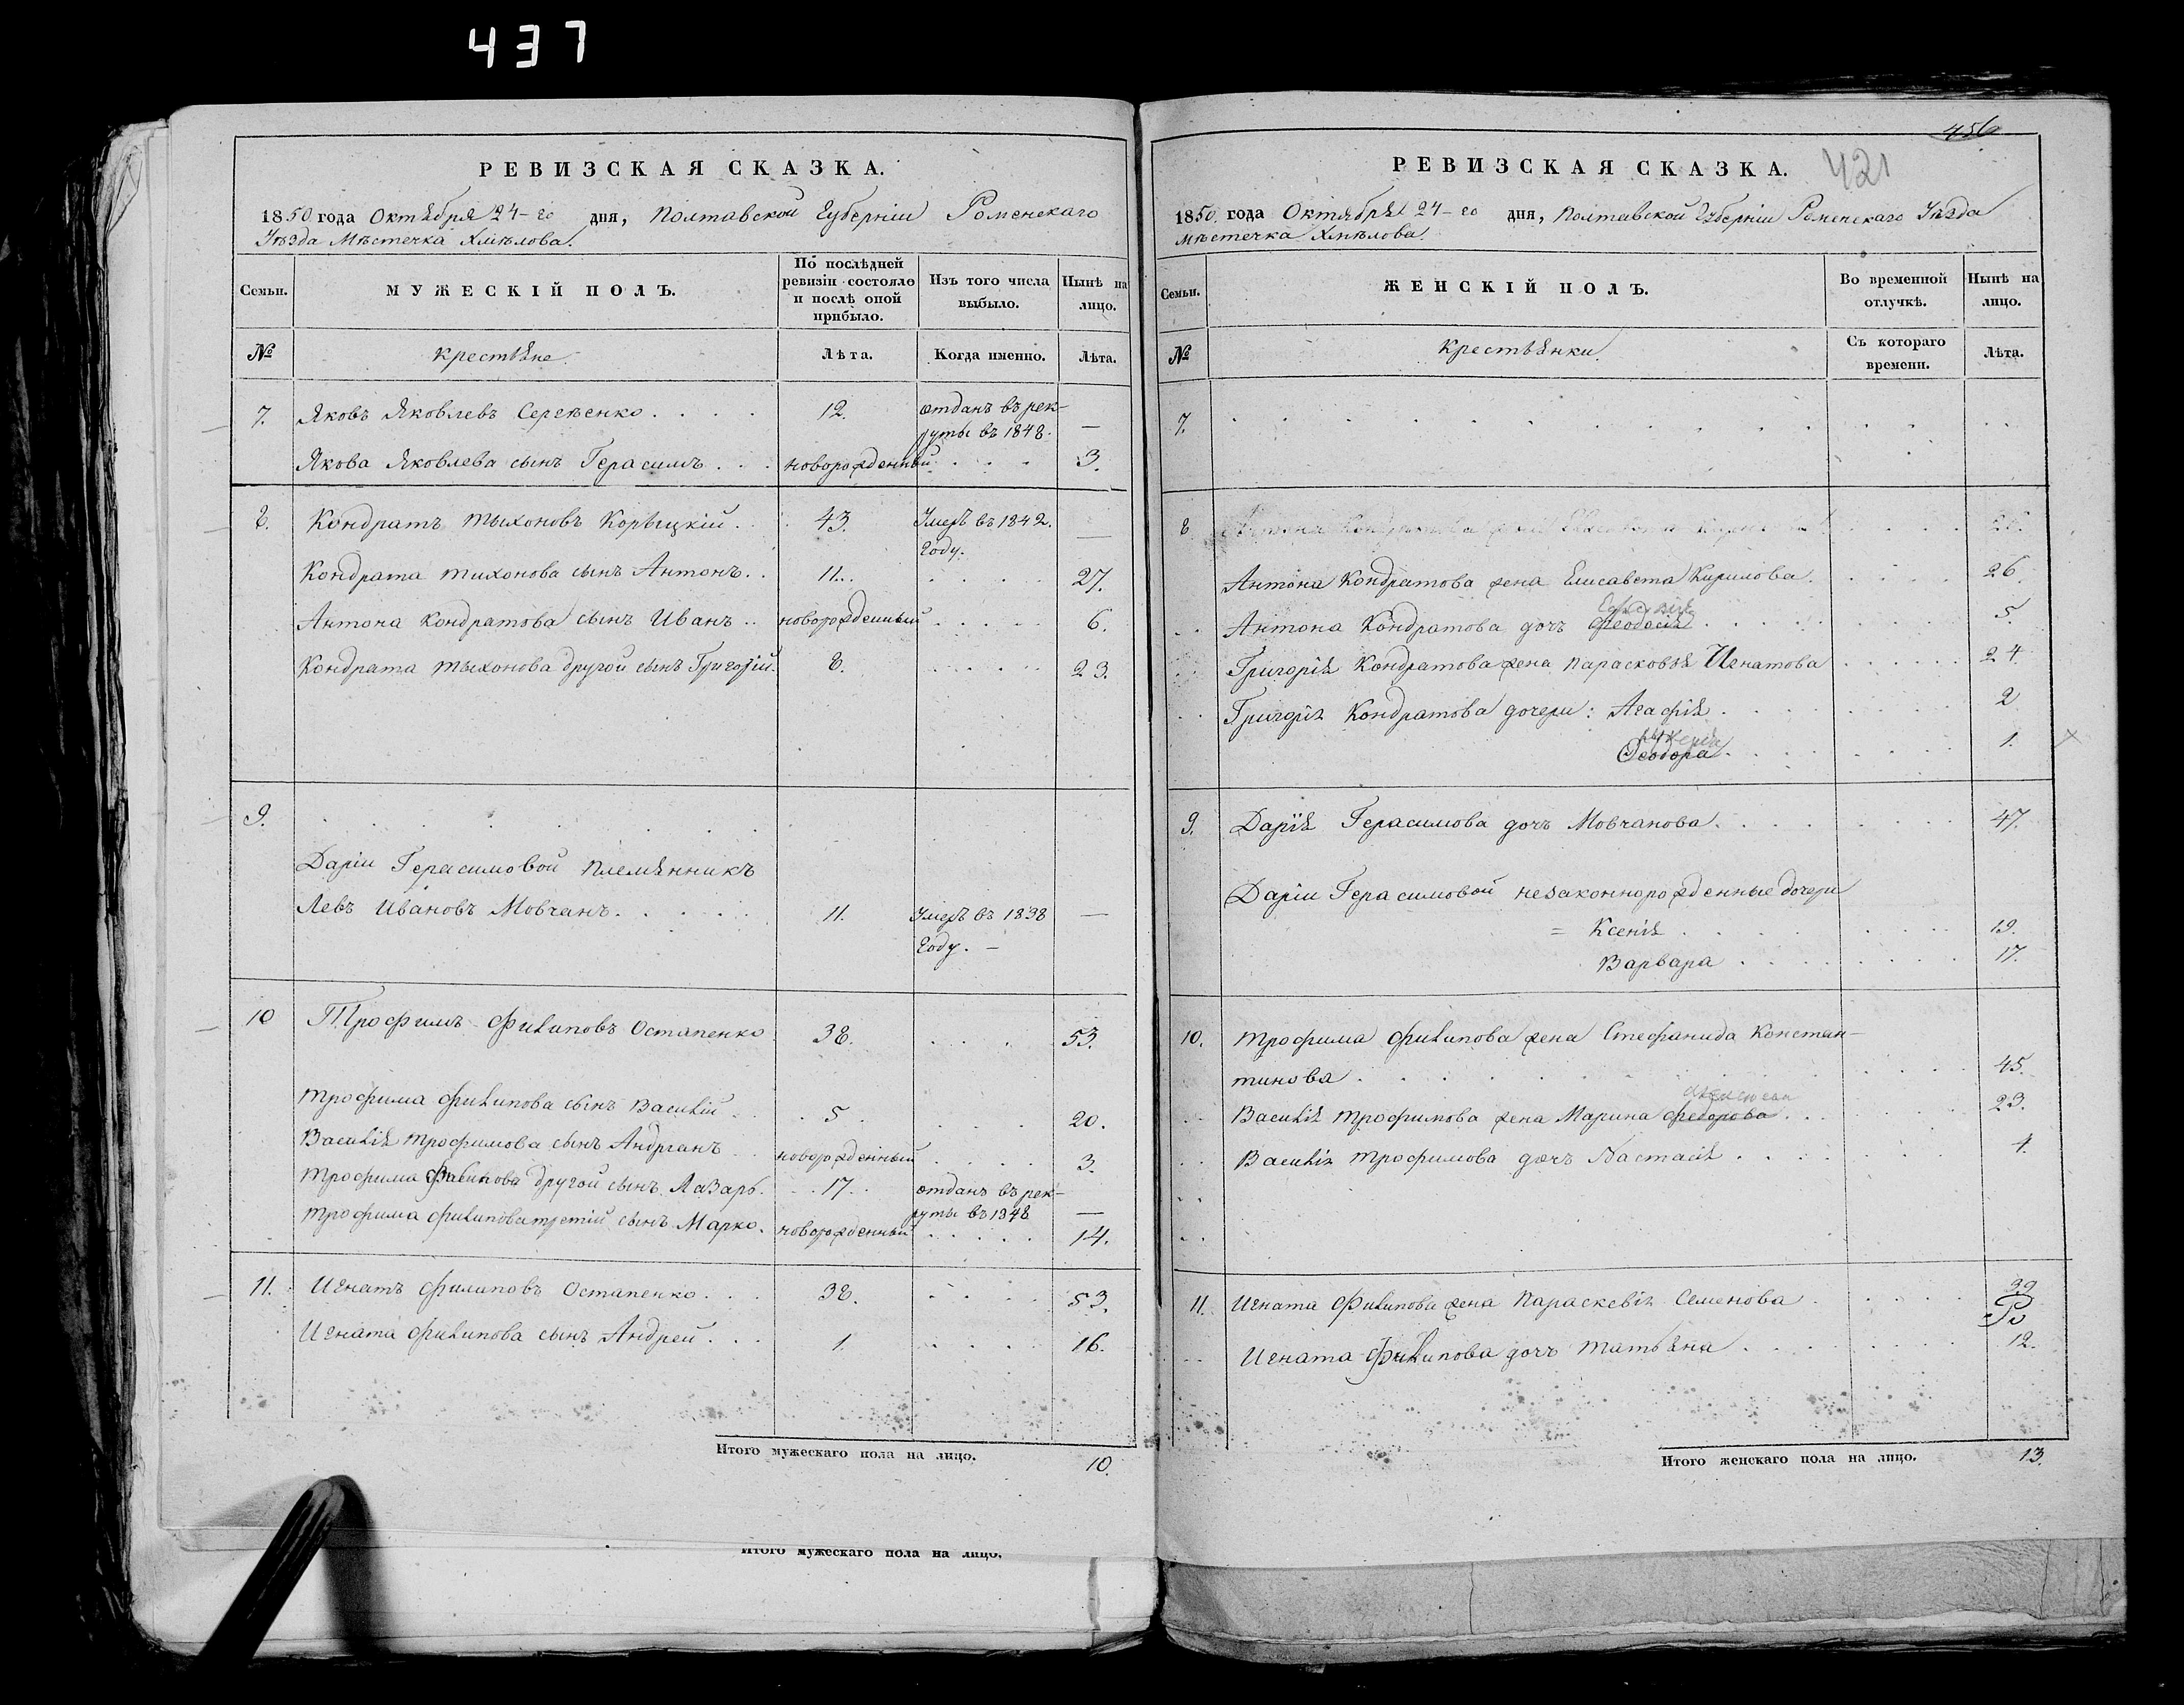 437
РЕВИЗСКАЯ СКАЗКА.
1850 года Октября 24-го дня, Полтавской Губерніи Роменскаго
Уѣзда Мѣстечка Хмѣлова.
Семьи.
МУЖЕСКІЙ ПОЛЪ.
По послѣдней ревизіи состояло и послѣ оной прибыло.
Изъ того числа выбыло.
Нынѣ на лицо.
№
крестьяне.
Лѣта.
Когда именно.
Лѣта.
7. Яковъ Яковлевъ 12. отданъ въ рек-
руты въ 1848. —
Якова Яковлева сынъ Герасимъ новорожденный 3.
8. Кондратъ Тыхоновъ 43. Умеръ въ 1842.
Году. —
Кондрата Тихонова сынъ Антонъ 11. 27.
Антона Кондратова сынъ Иванъ новорожденный 6.
Кондрата Тыхонова другой сынъ Григорій 8. 23.
9.
Даріи Герасимовой племянникъ
Левъ Ивановъ Мовчанъ 11. Умеръ въ 1838 —
Году. —
10 Трофимъ Филиповъ Остапенко 38. 53.
Трофима Филипова сынъ Василій 5. 20.
Василія Трофимова сынъ новорожденный 3.
Трофима Филипова другой сынъ Лазарь. 17. отданъ въ рек-
руты въ 1848 —
Трофима Филипова третій сынъ Марко. новорожденный 14.
11. Игнатъ Филиповъ Остапенко 38. 53.
Игната Филипова сынъ Андрей 1. 16.
Итого мужескаго пола на лицо. 10.
Итого мужескаго пола на лицо.
456
421
РЕВИЗСКАЯ СКАЗКА.
1850 года Октября 24-го дня, Полтавской Губерніи Роменскаго Уѣзда
Мѣстечка Хмѣлова.
Семьи.
ЖЕНСКІЙ ПОЛЪ.
Во временной отлучкѣ.
Нынѣ на лицо.
№
Крестьянки.
Съ котораго времени.
Лѣта.
7.
8
Антона Кондратова жена Елисавета Кирилова. 26.
Антона Кондратова дочь Феодосія 5.
Григорія Кондратова жена Парасковья Игнатова 24
Григорія Кондратова дочери: Агафія 2
Феодора 1.
9. Дарія Герасимова дочь Мовчанова. 47.
Даріи Герасимовой незаконнорожденные дочери
= Ксенія 19.
Варвара 17.
10. Трофима Филипова жена Стефанида Констан-
тинова 45.
Василія Трофимова жена Марина Федорова 23.
Василія Трофимова дочь Настасія 1.
11. Игната Филипова жена Параскевія Семенова 39
Игната Филипова дочь Татьяна 12.
Итого женскаго пола на лицо. 13.